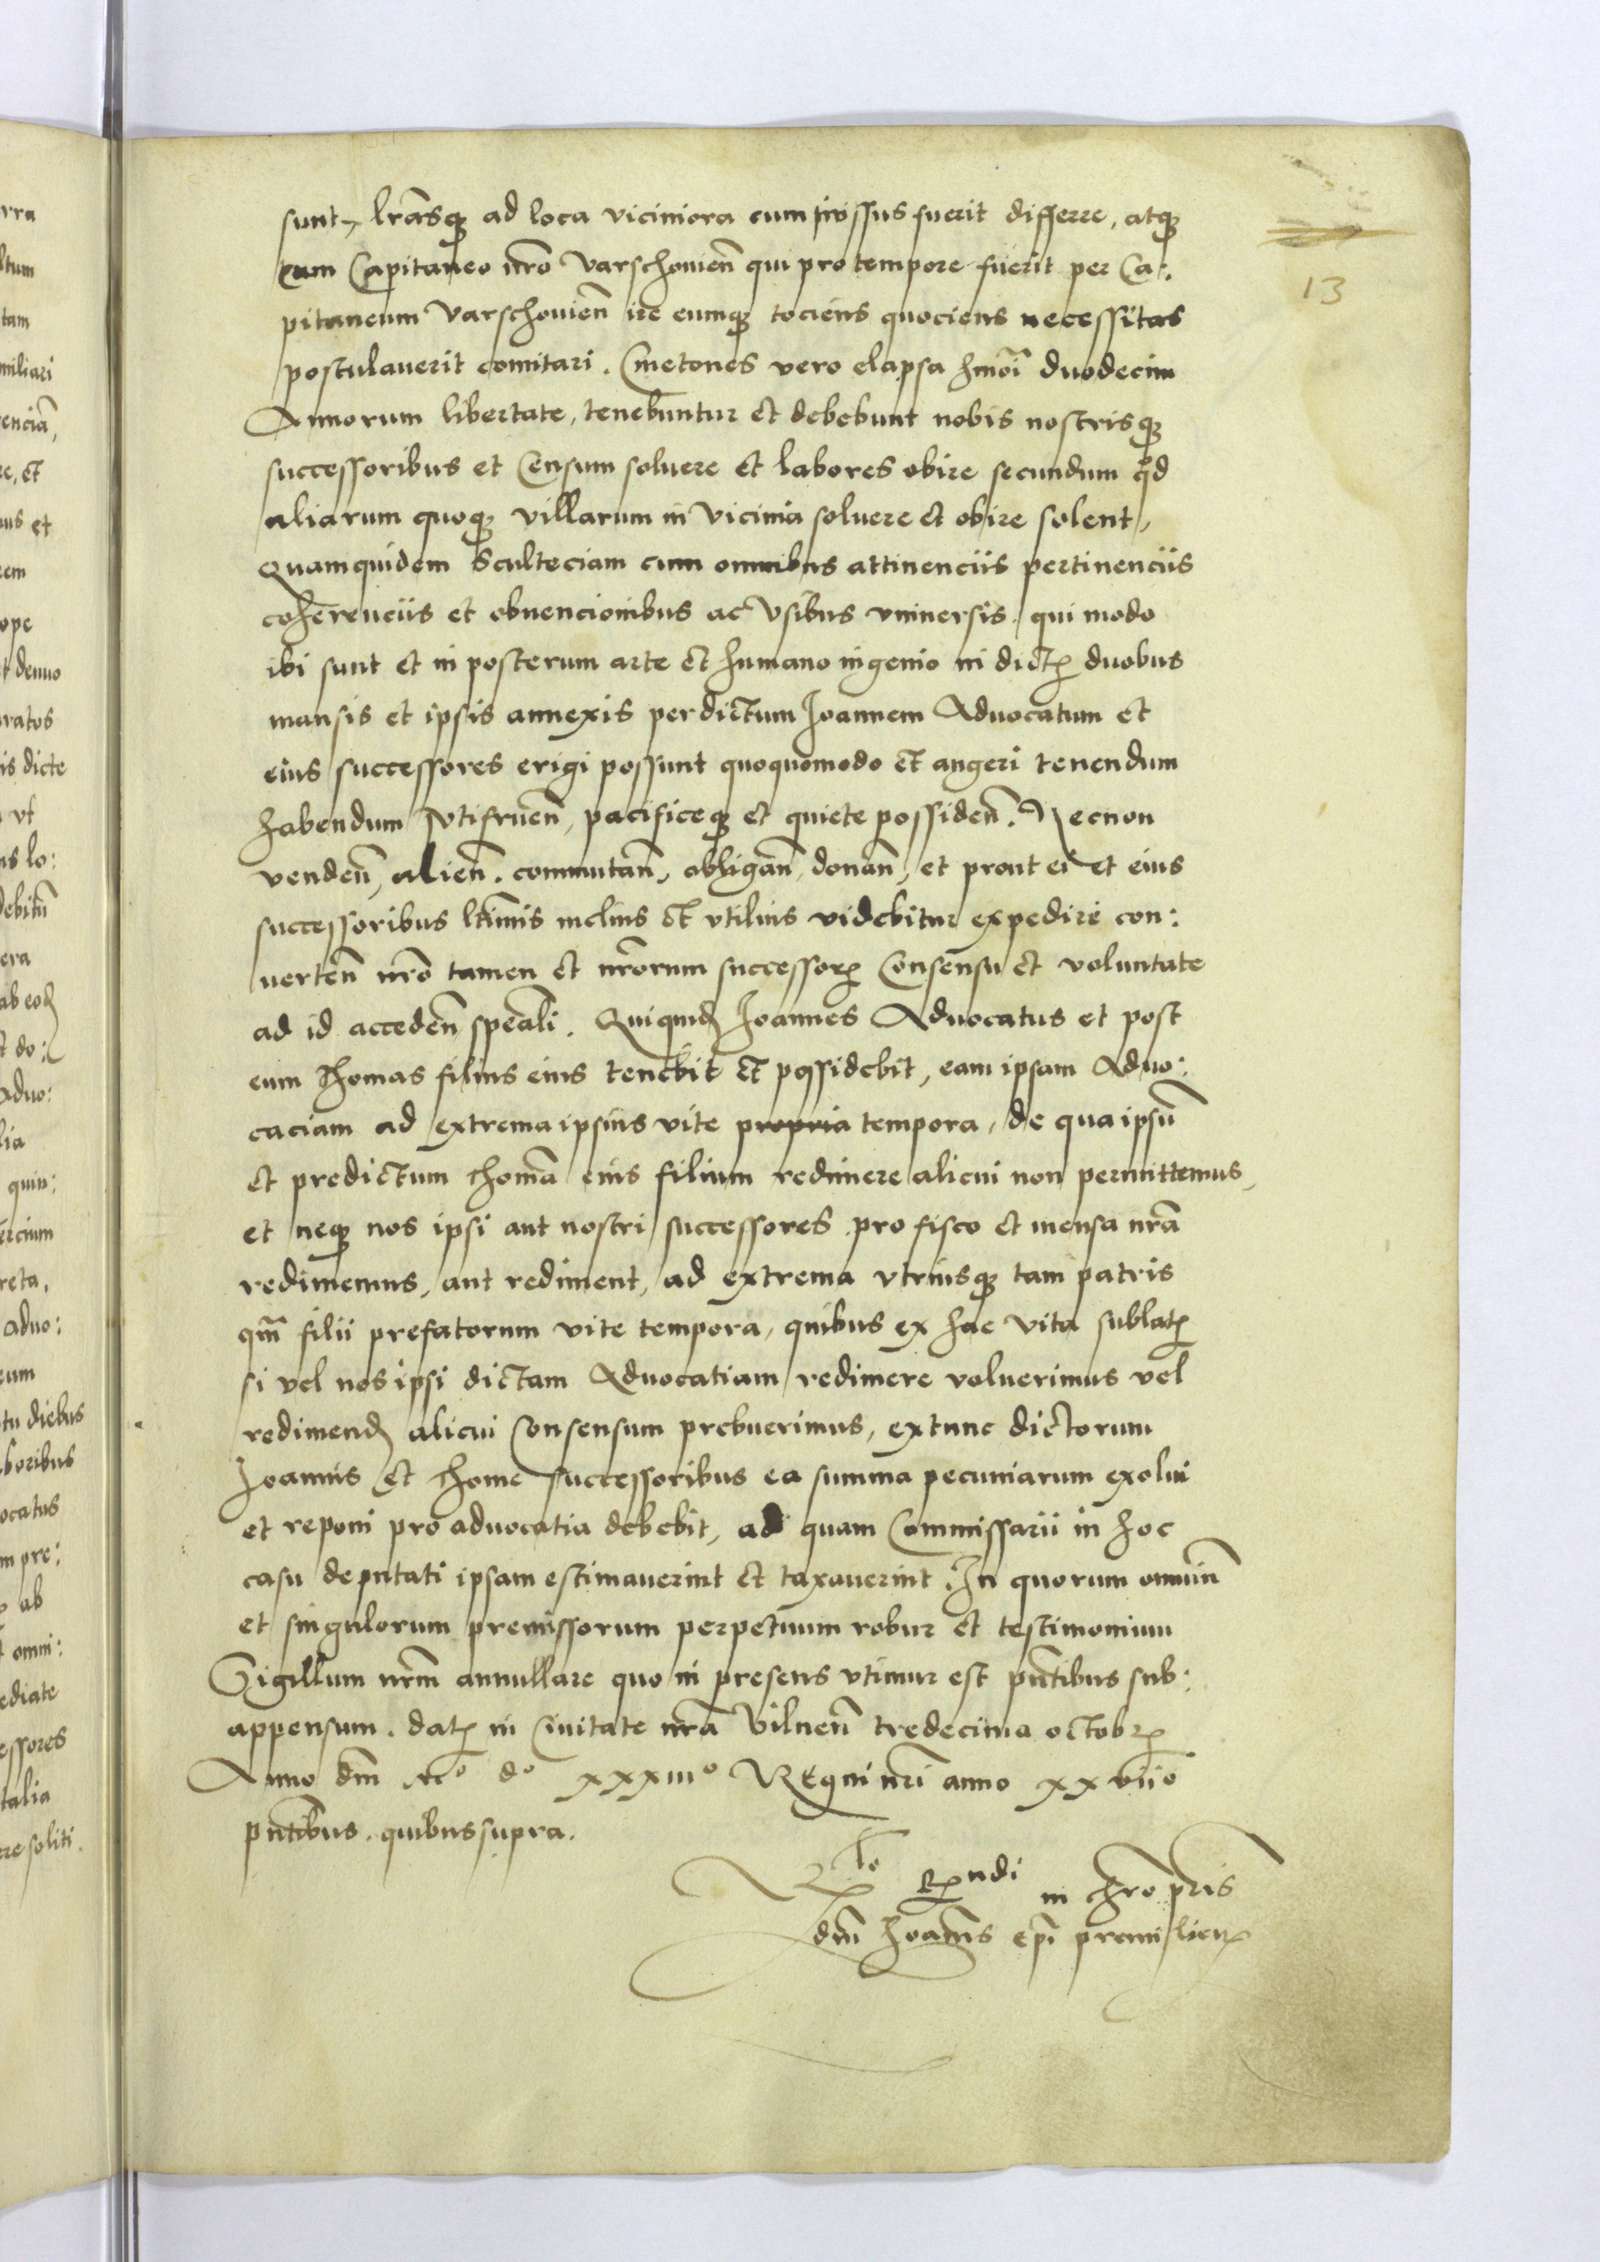 sunt, lrasq ad loca viciniora cum iussus fuerit differre, atq
cum Capitaneo nro Varschouien qui pro tempore fuerit per Ca:
pitaneum Varschouien ire eumq tociens quociens necessitas
postulauerit comitari. Cmetones vero elapsa hmoi duodecim
Annorum libertate, tenebuntur et debebunt nobis nostrisq
successoribus et Censum soluere et labores obire secundum qd
aliarum quoq villarum in vicinia soluere et obire solent,
Quamquidem Sculteciam cum omnibus attinenciis pertinenciis
coherenciis et obuencionibus ac vsibus vniuersis, qui modo
ibi sunt et in posterum arte et humano ingenio in dict duobus
mansis et ipsis annexis per dictum Joannem Aduocatum et
eius successores erigi possunt quoquomodo et augeri tenendum
habendum vtifruen, pacificeq et quiete possiden. Necnon
venden, alien. commutan, obligan, donan, et prout ei et eius
successoribus ltimis melius et vtilius videbitur expedire con:
uerten nro tamen et nrorum successor Consensu et voluntate
ad id acceden speali. Quiquid Joannes Aduocatus et post
eum Thomas filius eius tenebit et possidebit, eam ipsam Aduo:
caciam ad extrema ipsius vite propria tempora, de qua ipsu
et predictum Thoma eius filium redimere alicui non permittemus,
et neq nos ipsi aut nostri successores pro fisco et mensa nra
redimemus, aut rediment, ad extrema vtriusq tam patris
qm filii prefatorum vite tempora, quibus ex hac vita sublat
si vel nos ipsi dictam Aduocatiam redimere voluerimus vel
redimend alicui Consensum prebuerimus, extunc dictorum
Joannis et Thome successoribus ea summa pecuniarum exolui
et reponi pro aduocatia debebit, ad quam Commissarii in hoc
casu deputati ipsam estimauerint et taxauerint. In quorum omniu
et singulorum premissorum perpetuum robur et testimonium
Sigillum nrm annullare quo in presens vtimur est pntibus sub:
appensum. dat in Ciuitate nra Vilnen tredecima octobr
Anno dm Mo do xxxiiio Regni nri anno xxviio
pntibus. quibus supra.
Rlo Rndi in Chro pris
dni Joanis epi premislien
13